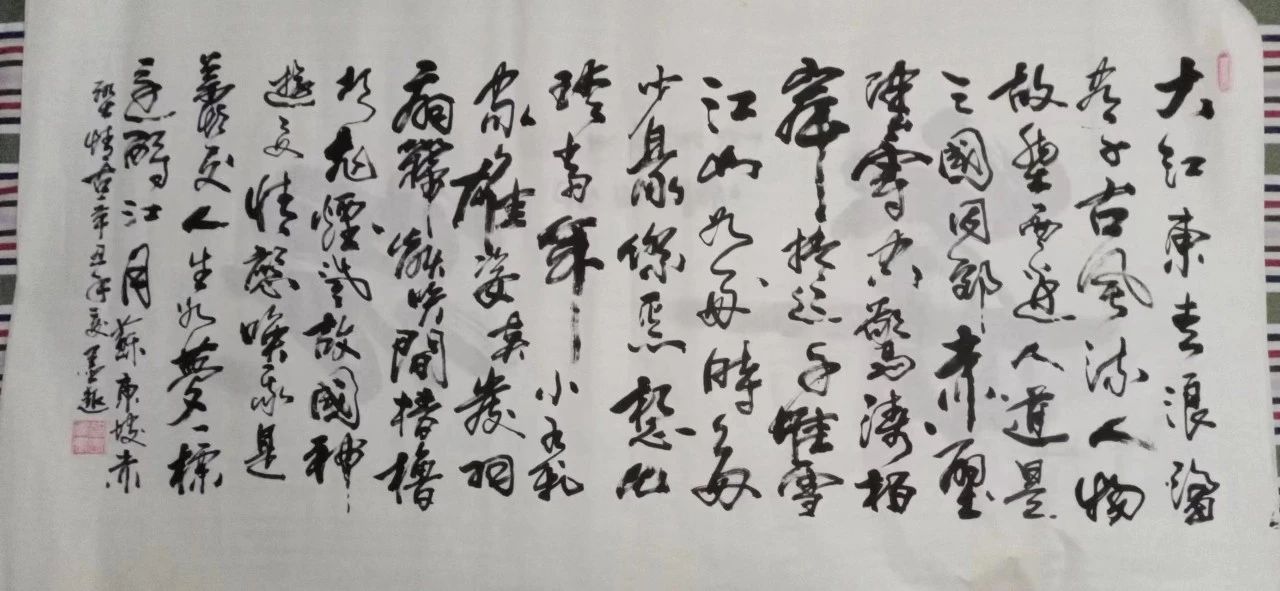 大江東去浪淘
千古風流人物
故壘西邊人道是
三國周郎赤壁
雲驚濤拍
岸捲起千堆雪
江山如時多
少豪傑想
當年小喬初
家雄姿英發羽
扇談笑間檣櫓
飛煙滅故國神
遊多情應笑我是
髮人生如夢一樽
還酹江月蘇東坡赤
壁情古辛丑年夏墨趣